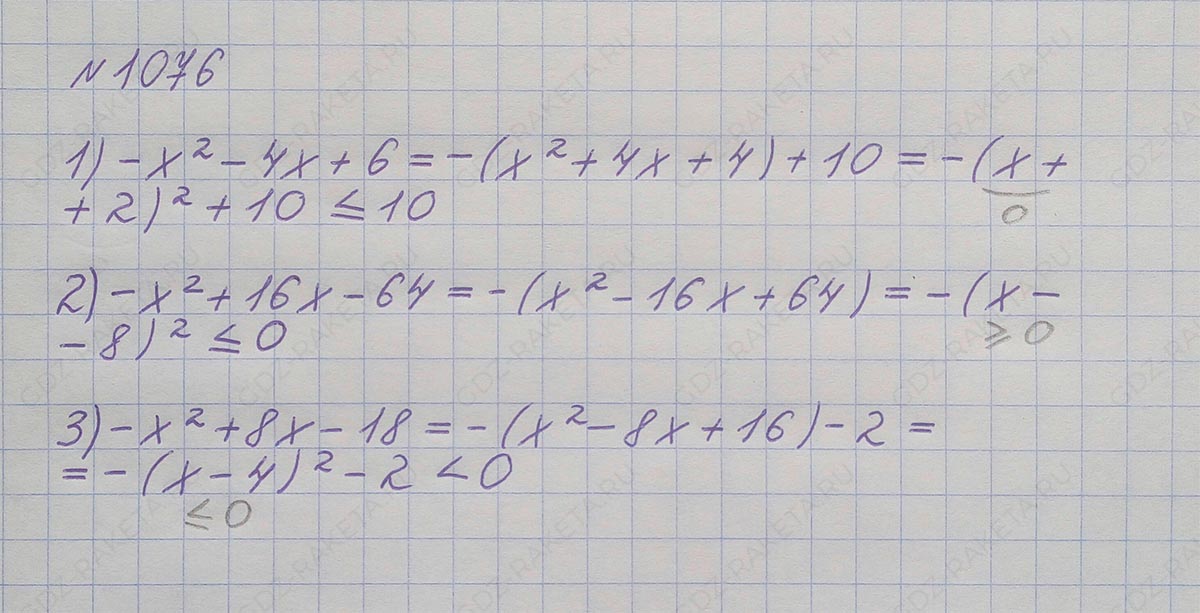 №1076
1) -x² - 4x + 6 = -(x² + 4x + 4) + 10 = -(x +
0
+ 2)² + 10 ≤ 10
2) -x² + 16x - 64 = -(x² - 16x + 64) = -(x -
≥ 0
- 8)² ≤ 0
3) -x² + 8x - 18 = -(x² - 8x + 16) - 2 =
= -(x - 4)² - 2 < 0
≤ 0
GDZ-RAKETA.RU